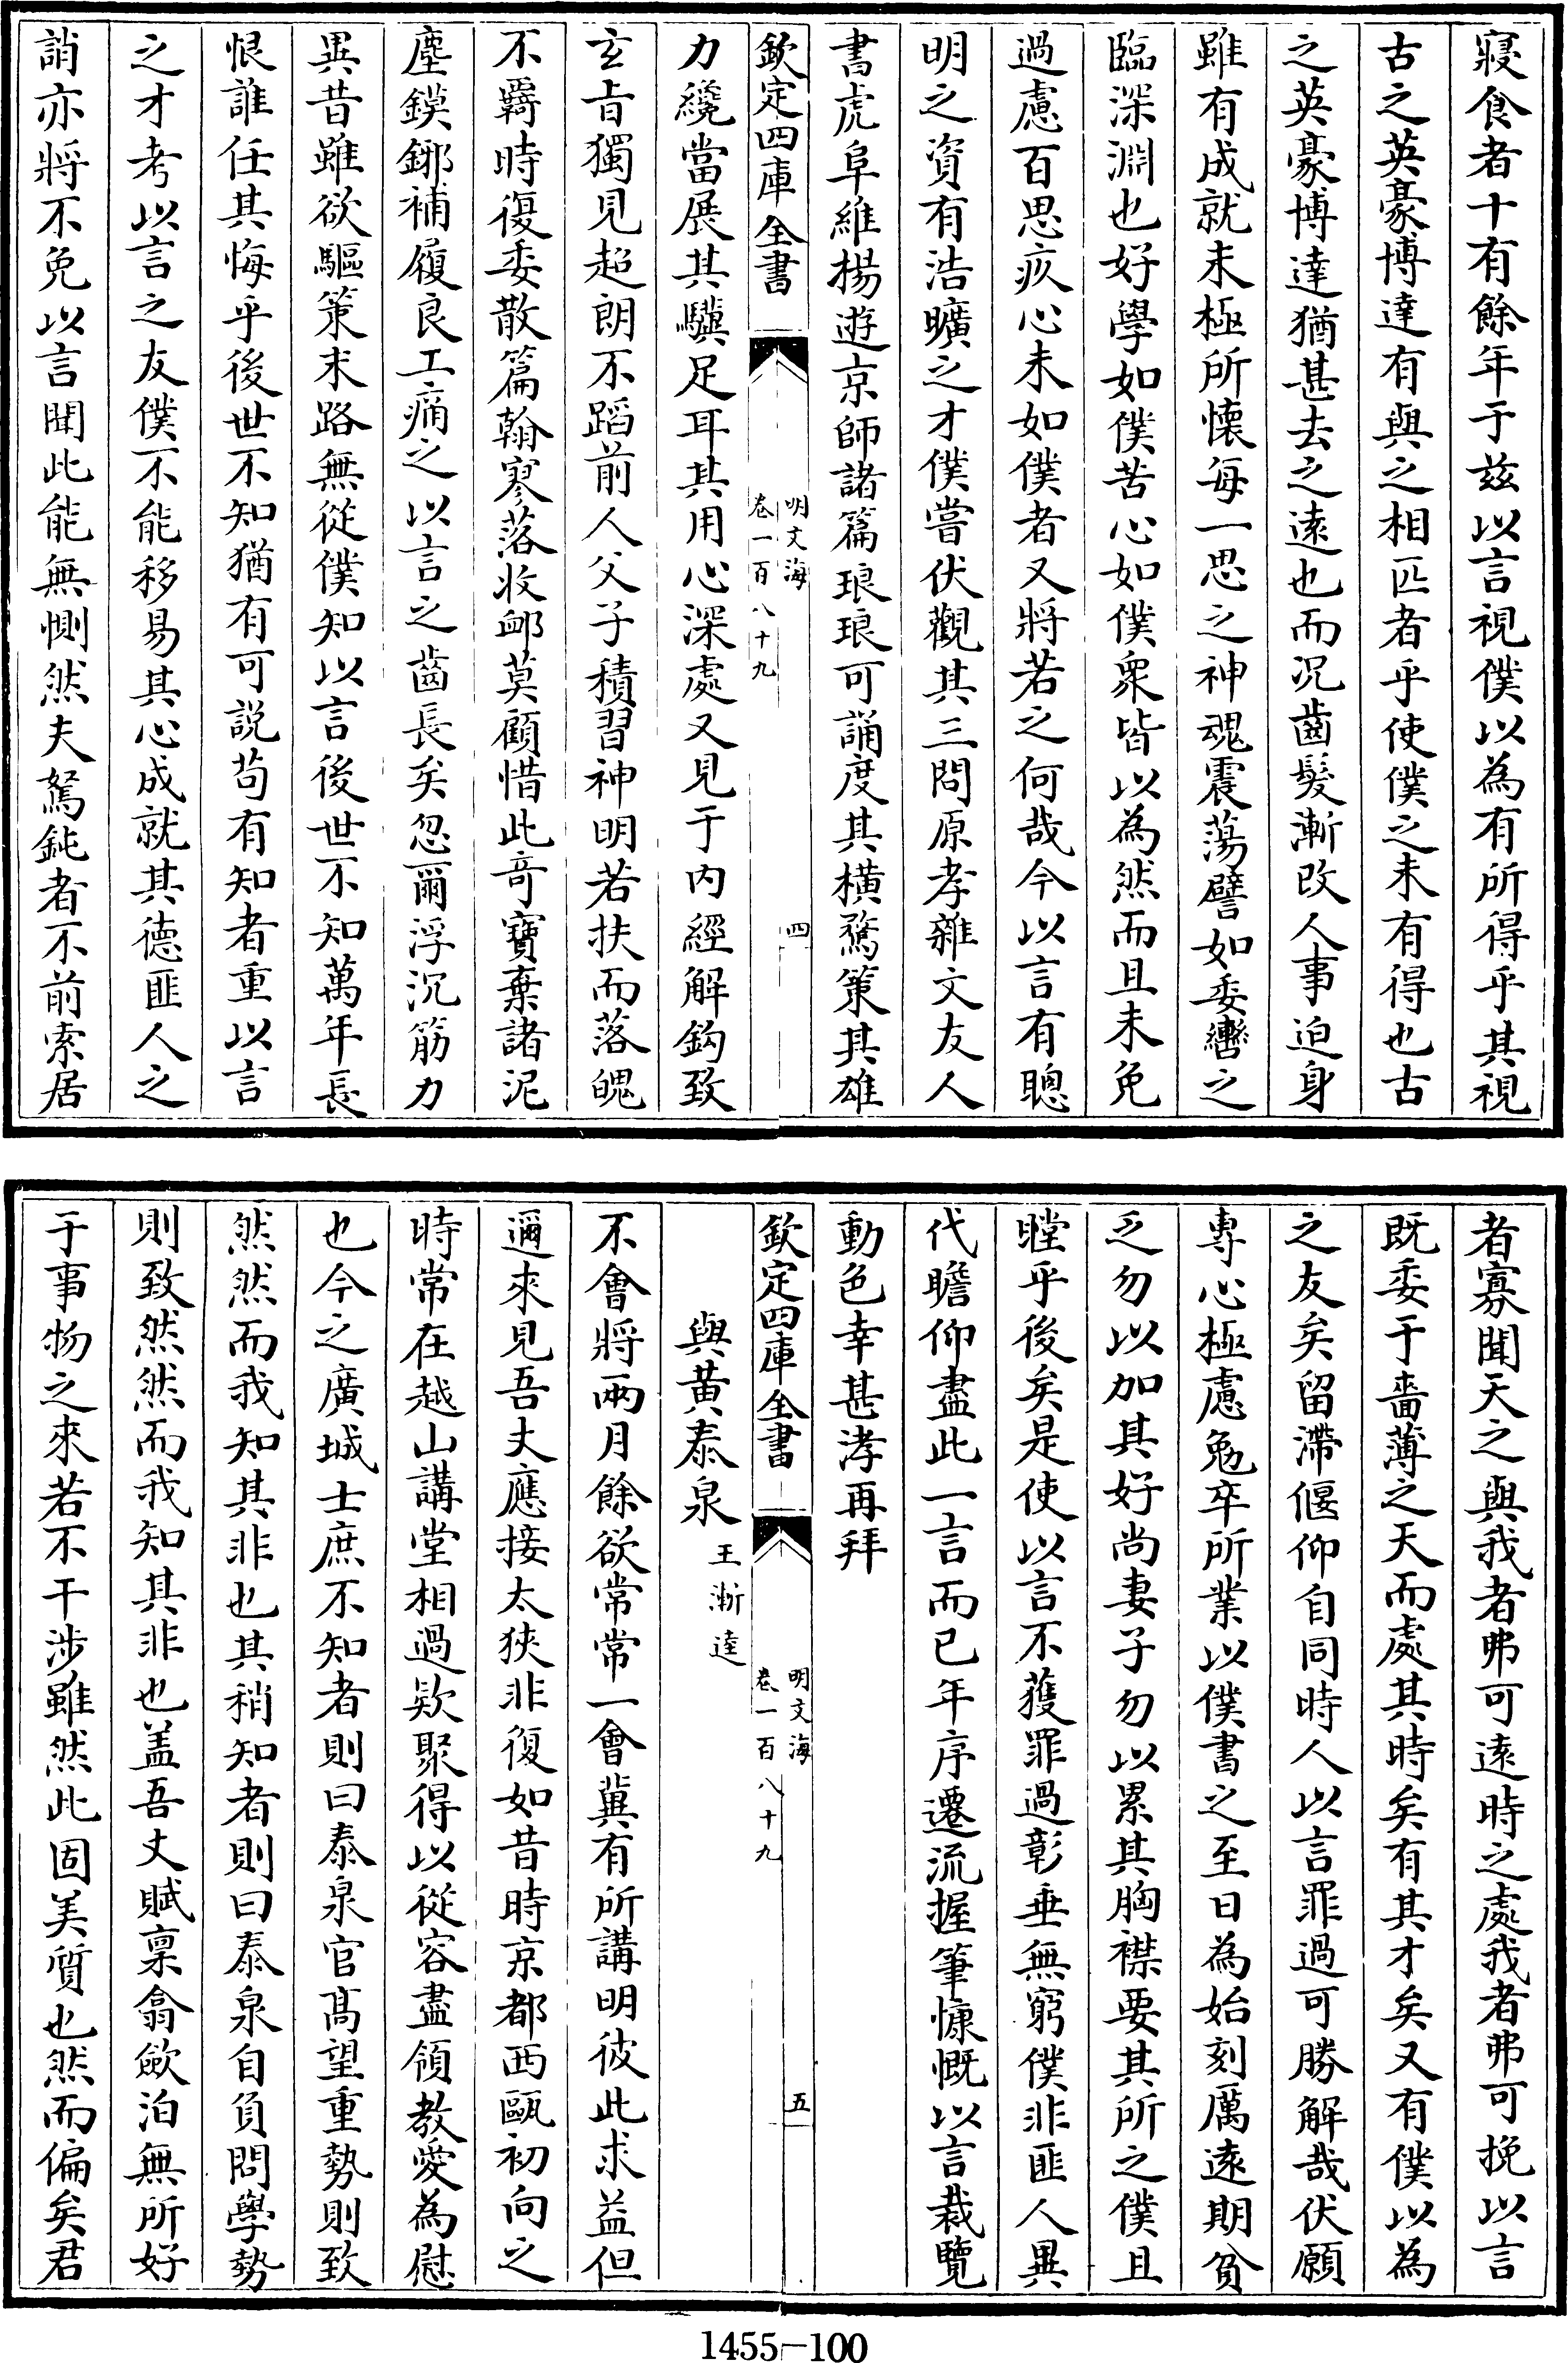 寢食者十有餘年于兹以言視僕以為有所得乎其視
古之英豪博達有與之相匹者乎使僕之未有得也古
之英豪博達猶甚去之遠也而况齒髮漸改人事迫身
雖有成就未極所懐每一思之神魂震蕩譬如委轡之
臨深淵也好學如僕苦心如僕衆皆以為然而且未免
過慮百思疚心未如僕者又將若之何哉今以言有聰
明之資有浩曠之才僕嘗伏觀其三問原孝雜文友人
書虎阜維揚遊京師諸篇琅琅可誦度其横騖策其雄
欽定四庫全書
明文海
卷一百八十九
四
力纔當展其驥足耳其用心深處又見于内經解鈎致
玄㫖獨見超朗不蹈前人父子積習神明若扶而落魄
不羈時復委散篇翰寥落收䘏莫顧惜此竒寶棄諸泥
塵鏌鎁補履良工痛之以言之齒長矣忽爾浮沉筋力
異昔雖欲驅策末路無從僕知以言後世不知萬年長
恨誰任其悔乎後世不知猶有可說苟有知者重以言
之才考以言之友僕不能移易其心成就其德匪人之
誚亦將不免以言聞此能無惻然夫駑鈍者不前索居
者寡聞天之與我者弗可遠時之處我者弗可挽以言
既委于嗇薄之天而處其時矣有其才矣又有僕以為
之友矣留滯偃仰自同時人以言罪過可勝解哉伏願
専心極慮勉卒所業以僕書之至日為始刻厲遠期貧
乏勿以加其好尚妻子勿以累其胸襟要其所之僕且
瞠乎後矣是使以言不獲罪過彰垂無窮僕非匪人異
代瞻仰盡此一言而已年序遷流握筆慷慨以言裁覽
動色幸甚孝再拜
欽定四庫全書
明文海
卷一百八十九
五
與黄泰泉
王漸逵
不㑹將兩月餘欲常常一㑹冀有所講明彼此求益但
邇來見吾丈應接太狹非復如昔時京都西甌初向之
時常在越山講堂相過欵聚得以從容盡領教愛為慰
也今之廣城士庶不知者則曰泰泉官髙望重勢則致
然然而我知其非也其稍知者則曰泰泉自負問學勢
則致然然而我知其非也盖吾丈賦稟翕歛泊無所好
于事物之來若不干涉雖然此固美質也然而偏矣君
1455—100